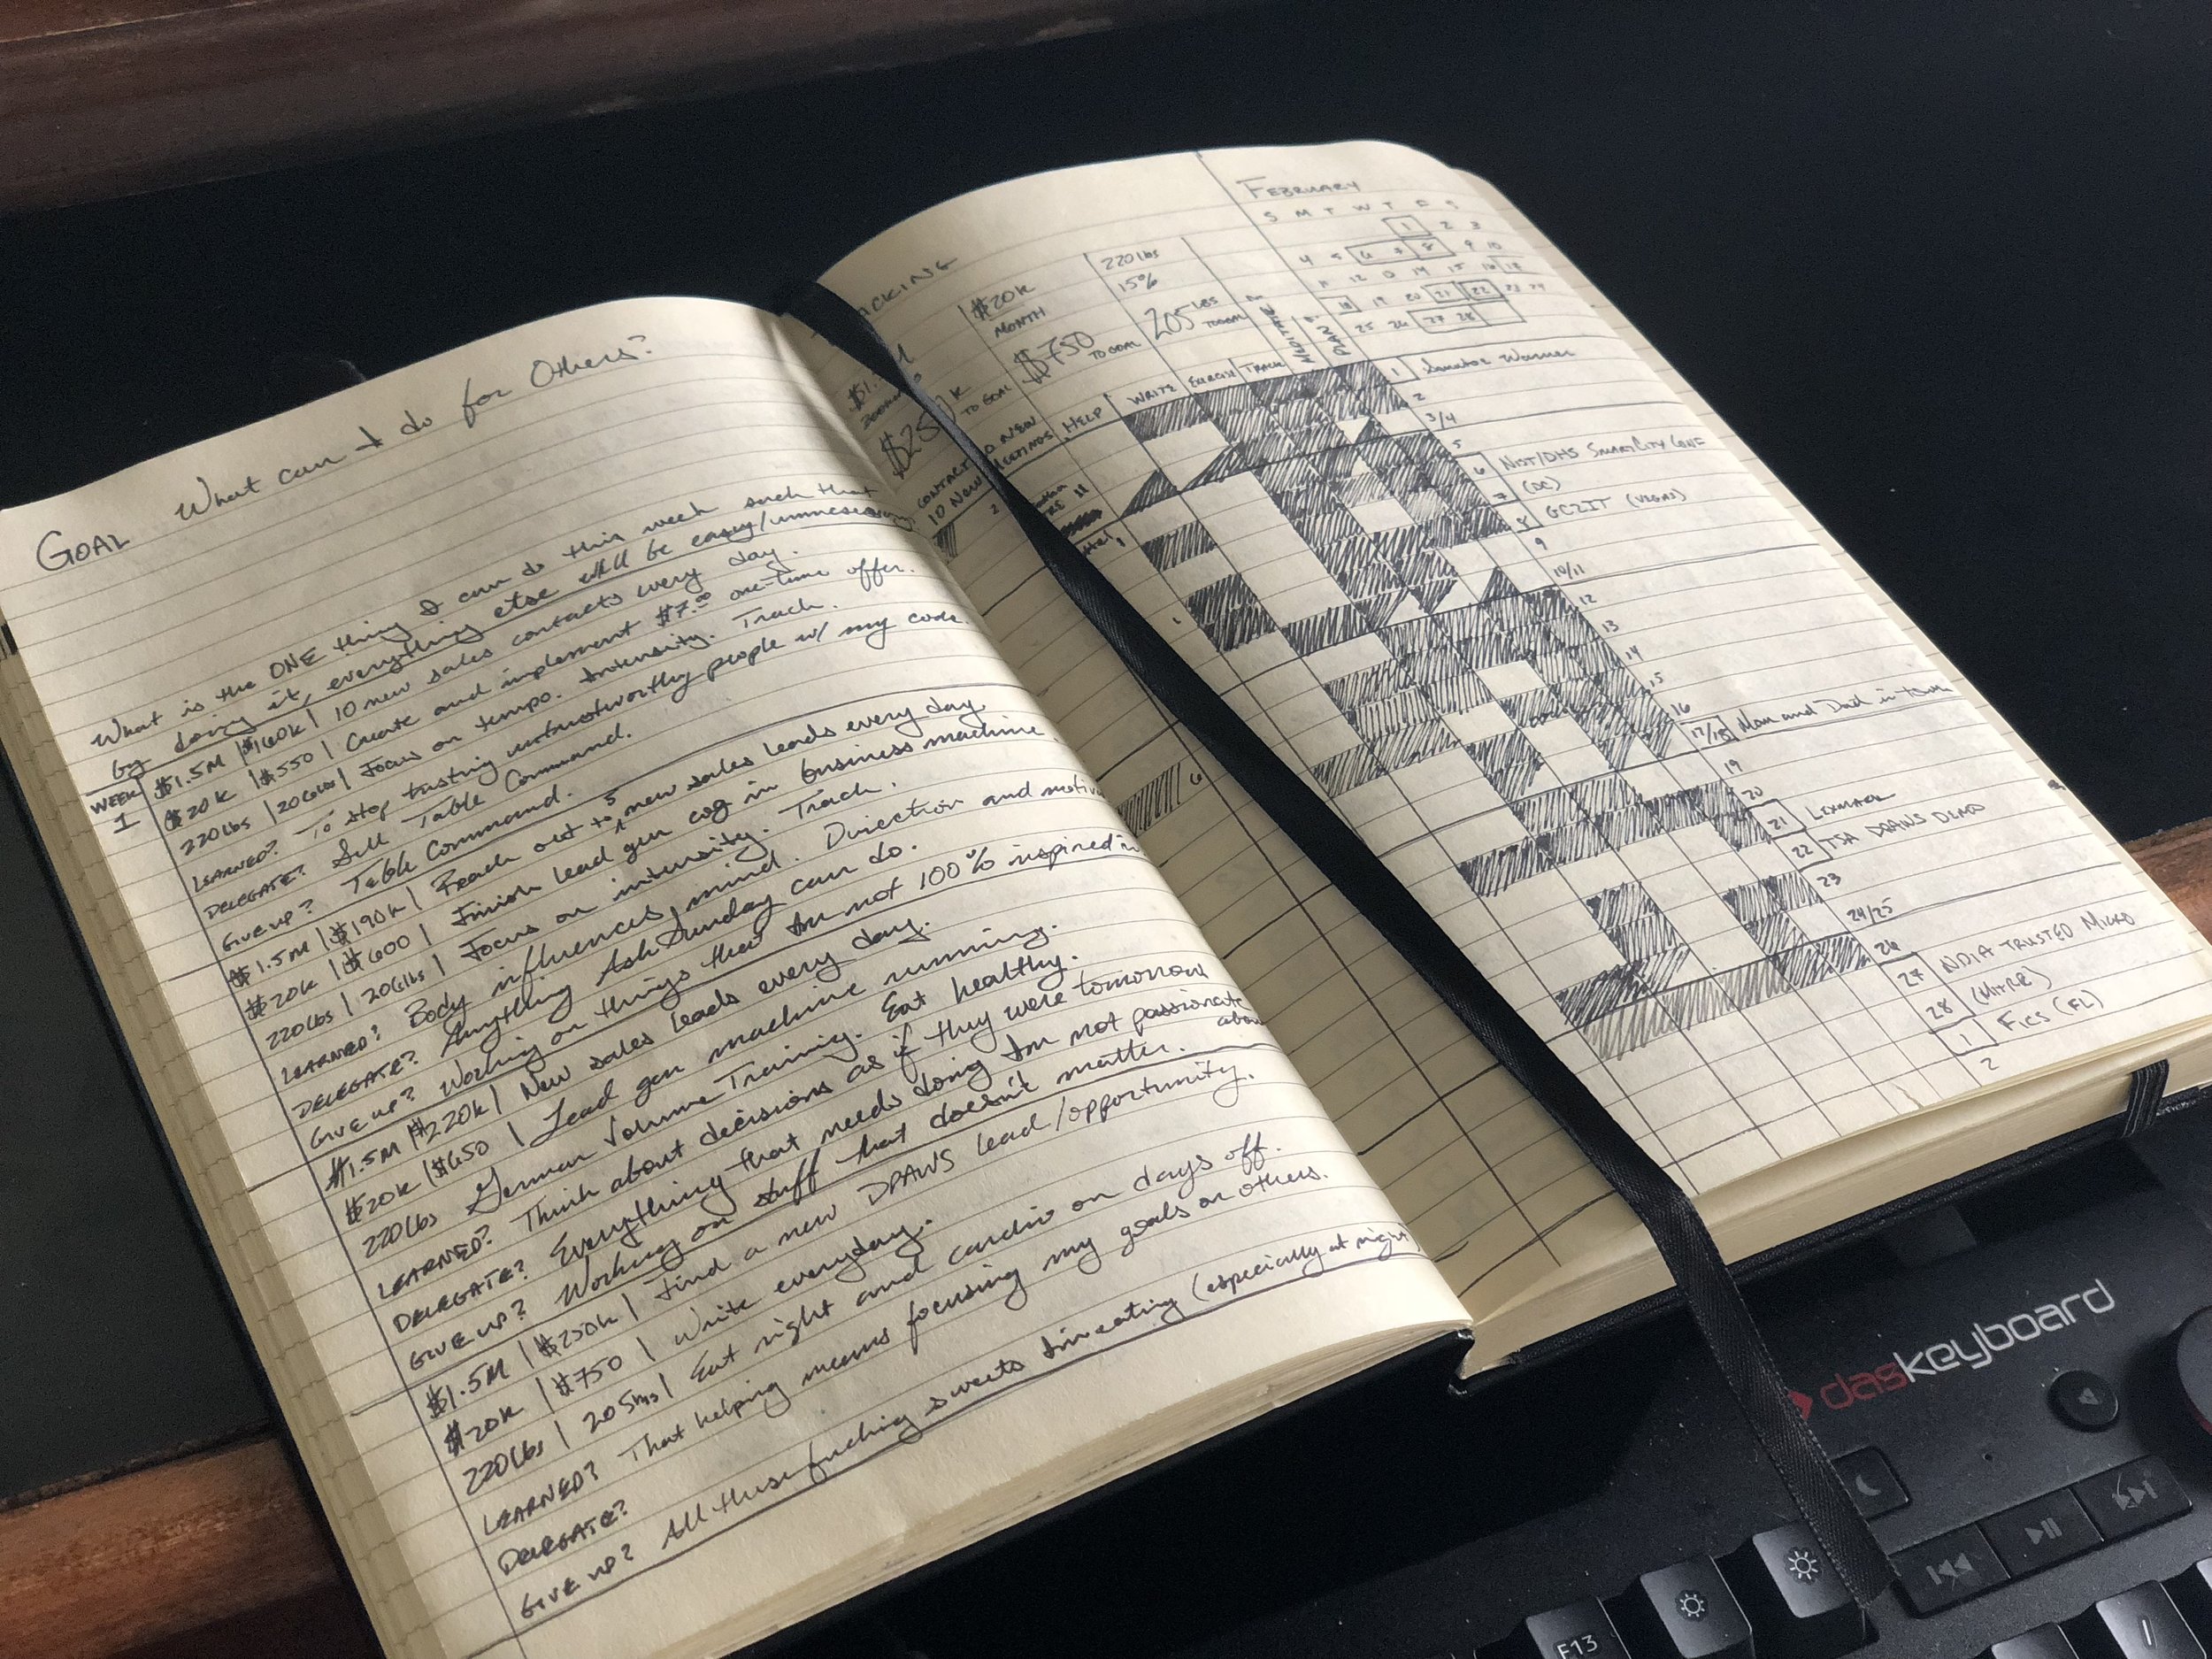 GOAL What can I do for Others?
What is the ONE thing I can do this week such that
by doing it, everything else will be easy/unnecessary.
WEEK 1
$1.5M | $160K | 10 new sales contacts every day.
$20K | $550 | Create and implement $7.00 one-time offer.
220lbs | 206lbs | Focus on tempo. Intensity. Track.
LEARNED? To stop trusting untrustworthy people w/ my code.
DELEGATE? Sell Table Command.
GIVE UP? Table Command.
$1.5M | $190K | Reach out to 5 new sales leads every day.
$20K | $600 | Finish lead gen cog in business machine.
220lbs | 206lbs | Focus on intensity. Track.
LEARNED? Body influences mind. Direction and
DELEGATE? Anything Ash Sunday can do.
GIVE UP? Working on things that I'm not 100% inspired
$1.5M | $220K | New sales leads every day.
$20K | $650 | Lead gen machine running.
220lbs German Volume Training. Eat healthy.
LEARNED? Think about decisions as if they were tomorrow
DELEGATE? Everything that needs doing I'm not passionate about
GIVE UP? Working on stuff that doesn't matter.
$1.5M | $250K | Find a new DPAWS lead/opportunity.
$20K | $750 | Write everyday.
220lbs | 205lbs | Eat right and cardio on days off.
LEARNED? That helping means focusing my goals on others.
DELEGATE?
GIVE UP? All these fucking sweets I'm eating (especially at night)
ACKING
$20K MONTH
220lbs 15%
TO GOAL
$750 TO GOAL
205 LBS TO GOAL
10 NEW
MEETINGS
HELP
WRITE
EXERCISE
TRACK
MEDITATE
PLAN
FEBRUARY
S M T W T F S
1 2 3
4 5 6 7 8 9 10
11 12 13 14 15 16 17
18 19 20 21 22 23 24
25 26 27 28
1 Senator Warner
2
3/4
5
6 NIST/DHS SMARTCITY CONF
7 (DC)
8 GC2IT (VEGAS)
9
10/11
12
13
14
15
16
17/18 Mom and Dad in town
19
20
21 LEXMARK
22 TSA DPAWS DEMO
23
24/25
26
27 NDIA TRUSTED MICRO
28 (MITRE)
1 FICS (FL)
2
daskeyboard
F13